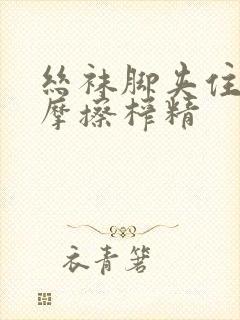 丝袜脚夹住
摩擦榨精
衣青箬